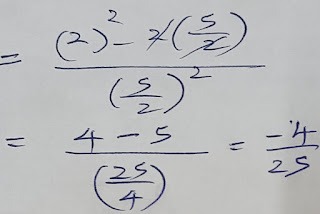 = ((2)² - 2(5/2)) / (5/2)²
= (4 - 5) / (25/4) = -4/25